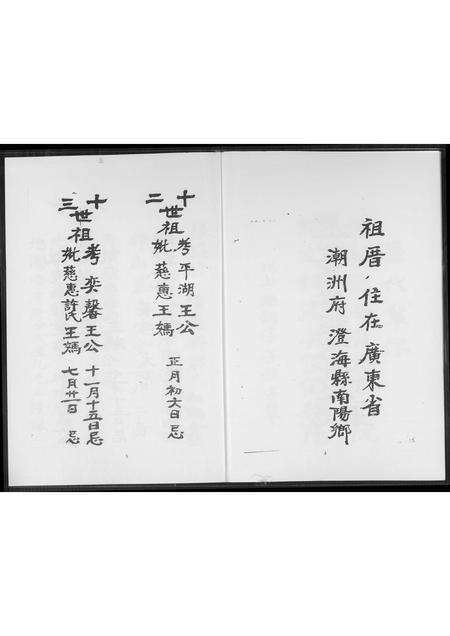 祖厝．住在廣東省
潮洲府 澄海縣南陽鄉
十二世祖考平湖王公
妣慈惠王媽 正月初六日 忌
十三世祖考奕馨王公 十一月十五日忌
妣慈惠許氏王媽 七月廿一日 忌